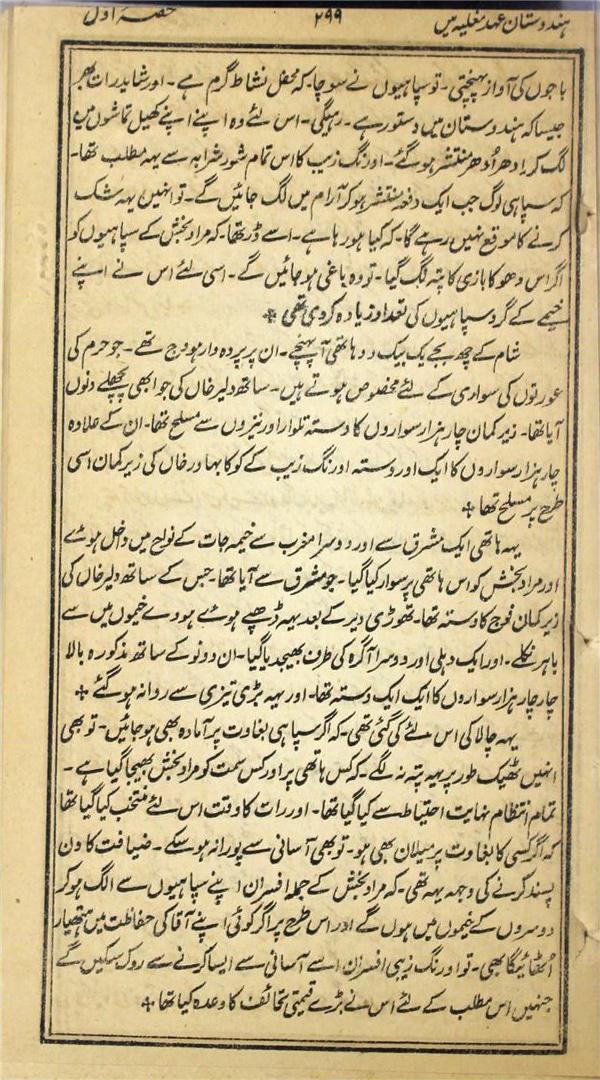 ہندوستان عہد مغلیہ میں ۲۹۹ حصہ اول
باجوں کی آواز پہنچتی۔ تو سپاہیوں نے سوچا۔ کہ محفل نشاط گرم ہے۔ اور شاید رات بھر
جیسا کہ ہندوستان میں دستور ہے۔ رہیگی۔ اس لئے وہ اپنے اپنے کھیل تماشوں میں
لگ کر ادھر اُدھر منتشر ہو گئے۔ اورنگ زیب کا اس تمام شور شرابہ سے یہہ مطلب تھا۔
کہ سپاہی لوگ جب ایک دفعہ منتشر ہو کر آرام میں لگ جائیں گے۔ تو انہیں یہہ شک
کرنے کا موقع نہیں رہے گا۔ کہ کیا ہو رہا ہے۔ اسے ڈر تھا۔ کہ مراد بخش کے سپاہیوں کو
اگر اس دھوکا بازی کا پتہ لگ گیا۔ تو وہ باغی ہو جائیں گے۔ اسی لئے اس نے اپنے
خیمے کے گرد سپاہیوں کی تعداد زیادہ کر دی تھی ٭
شام کے چھ بجے یک بیک دو ہاتھی آ پہنچے۔ ان پر پردہ دار ہودج تھے۔ جو حرم کی
عورتوں کی سواری کے لئے مخصوص ہوتے ہیں۔ ساتھ دلیر خاں کی جو ابھی پچھلے دنوں
آیا تھا۔ زیر کمان چار ہزار سواروں کا دستہ تلوار اور نیزوں سے مسلح تھا۔ ان کے علاوہ
چار ہزار سواروں کا ایک اور دستہ اورنگ زیب کے کوکا بہادر خاں کی زیر کمان اسی
طرح پر مسلح تھا ٭
یہہ ہاتھی ایک مشرق سے اور دوسرا مغرب سے خیمہ جات کے نواح میں داخل ہوئے
اور مراد بخش کو اس ہاتھی پر سوار کیا گیا۔ جو مشرق سے آیا تھا۔ جس کے ساتھ دلیر خاں کی
زیر کمان فوج کا دستہ تھا۔ تھوڑی دیر کے بعد یہہ ڈھپے ہوئے ہودے خیموں میں سے
باہر نکلے۔ اور ایک دہلی اور دوسرا آگرہ کی طرف بھیجدیا گیا۔ ان دونو کے ساتھ مذکورہ بالا
چار چار ہزار سواروں کا ایک ایک دستہ تھا۔ اور یہہ بڑی تیزی سے روانہ ہو گئے ٭
یہہ چالاکی اس لئے کی گئی تھی۔ کہ اگر سپاہی بغاوت پر آمادہ بھی ہو جائیں۔ تو بھی
انہیں ٹھیک طور پر یہہ پتہ نہ لگے۔ کہ کس ہاتھی پر اور کس سمت کو مراد بخش بھیجا گیا ہے۔
تمام انتظام نہایت احتیاط سے کیا گیا تھا۔ اور رات کا وقت اس لئے منتخب کیا گیا تھا
کہ اگر کسی کا بغاوت پر میلان بھی ہو۔ تو بھی آسانی سے پورا نہ ہو سکے۔ ضیافت کا دن
پسند کرنے کی وجہ یہہ تھی۔ کہ مراد بخش کے جملہ افسران اپنے سپاہیوں سے الگ ہو کر
دوسروں کے خیموں میں ہوں گے اور اس طرح پر اگر کوئی اپنے آقا کی حفاظت میں ہتھیار
اُٹھائیگا بھی۔ تو اورنگ زیبی افسران اسے آسانی سے ایسا کرنے سے روک سکیں گے
جنہیں اس مطلب کے لئے اس نے بڑے قیمتی تحائف کا وعدہ کیا تھا ٭